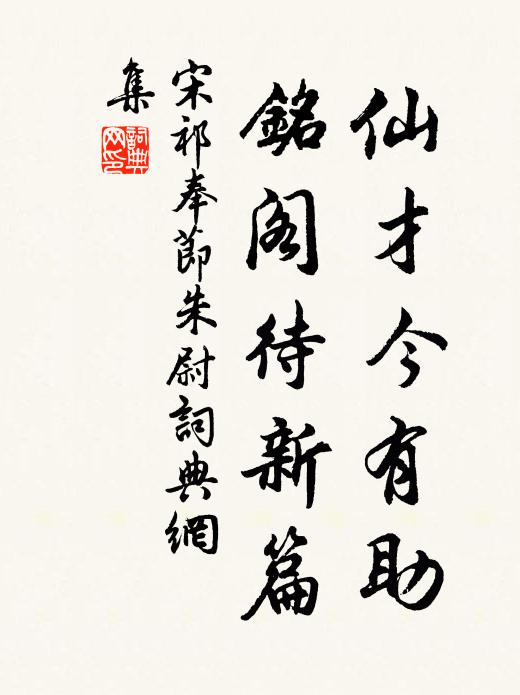 仙才今有助
銘阁待新篇
宋祁奉節朱尉詞典網
集
詞典
网印